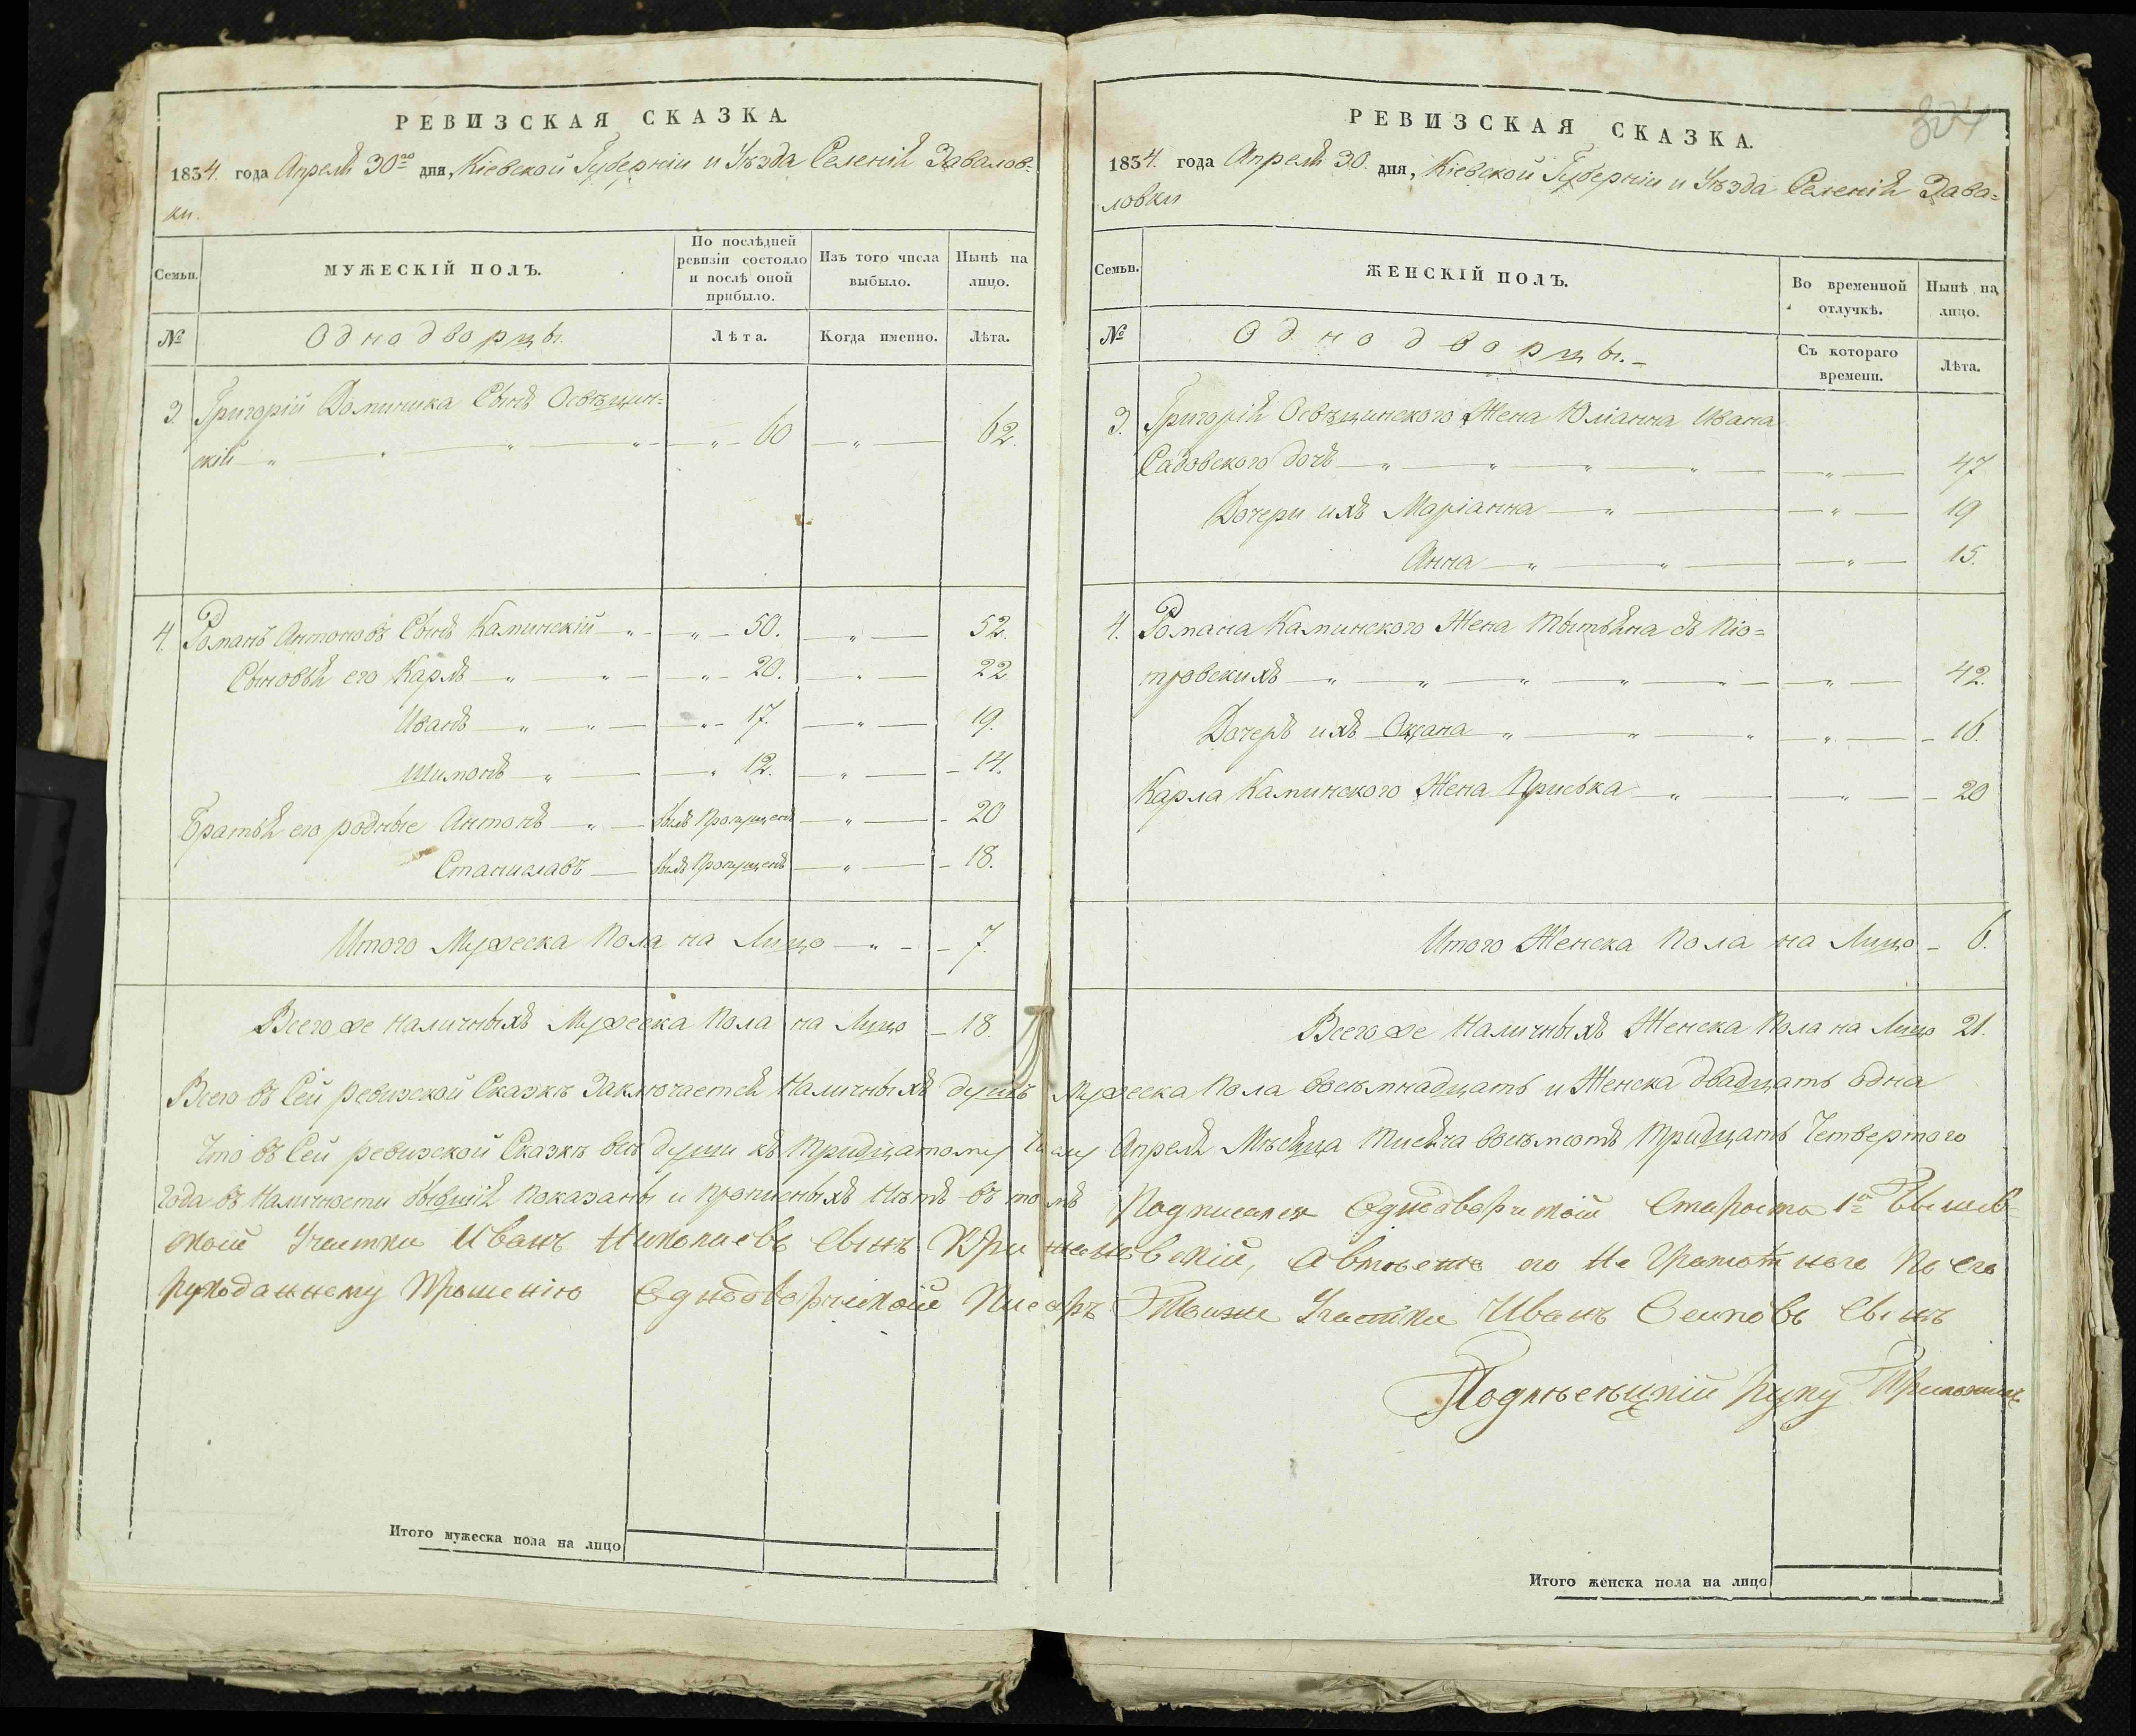 РЕВИЗСКАЯ СКАЗКА.
1834. года Апреля 30го дня, Кіевской Губерніи и Уѣзда Селенія Завалов=
ки.
Семьи.
МУЖЕСКІЙ ПОЛЪ.
По послѣдней
ревизіи состояло
и послѣ оной
прибыло.
Изъ того числа
выбыло.
Нынѣ на
лицо.
№
Однодворцы.
Лѣта.
Когда именно.
Лѣта.
3. Григорій Доминика Сынъ Освѣцин=
скій — „ — „ — „ — „ — 60 — „ — 62.
4. Романъ Антоновъ Сынъ Каминскій — „ — „ — 50. — „ — 52.
Сыновья его Карлъ — „ — „ — „ — 20. — „ — 22
Иванъ — „ — „ — „ — 17. — „ — 19.
Шимонъ — „ — „ 12. — „ — 14.
Братья его родные Антонъ — „ — былъ Пропущенъ — „ — 20
Станиславъ — былъ Пропущенъ — „ — 18.
Итого Мужеска Пола на Лицо — „ — 7.
Всего же Наличныхъ Мужеска Пола на Лицо — 18.
РЕВИЗСКАЯ СКАЗКА.
824
1834. года Апреля 30. дня, Кіевской Губерніи и Уѣзда Селенія Зава=
ловки
Семьи.
ЖЕНСКІЙ ПОЛЪ.
Во временной
отлучкѣ.
Нынѣ на
лицо.
№
Однодворцы. —
Съ котораго
времени.
Лѣта.
3. Григорія Освѣцинского Жена Юліанна Ивана
Садовского дочь — „ — „ — „ — „ — „ — 47
Дочери ихъ Маріанна — „ — „ — 19
Анна — „ — „ — „ — 15.
4. Романа Каминского Жена Тытьяна съ Піо=
тровскихъ — „ — „ — „ — „ — „ — „ — 42.
Дочерь ихъ Оксана „ — „ — „ — „ — 16.
Карла Каминского Жена Приська — „ — „ — 20
Итого Женска Пола на Лицо — 6.
Всего же Наличныхъ Женска Пола на Лицо 21.
Всего въ Сей ревизской Сказкѣ Заключается Наличныхъ душъ Мужеска Пола восемнадцать и Женска двадцать одна
Что въ Сей ревизской Сказкѣ всѣ души къ Тридцатому Числу Апреля Мѣсяца Тысяча восемсотъ Тридцать Четвертого
Года въ Наличности бывшія показаны и прописныхъ нѣтъ въ томъ Подписался Однодворческой Староста 1го
Участка Иванъ Николаевъ Сынъ а вместо его Не Грамотного По его
рукоданному Прошенію Однодворческой Писарь Участка Иванъ Сынъ
руку Приложилъ
Итого мужеска пола на лицо
Итого женска пола на лицо